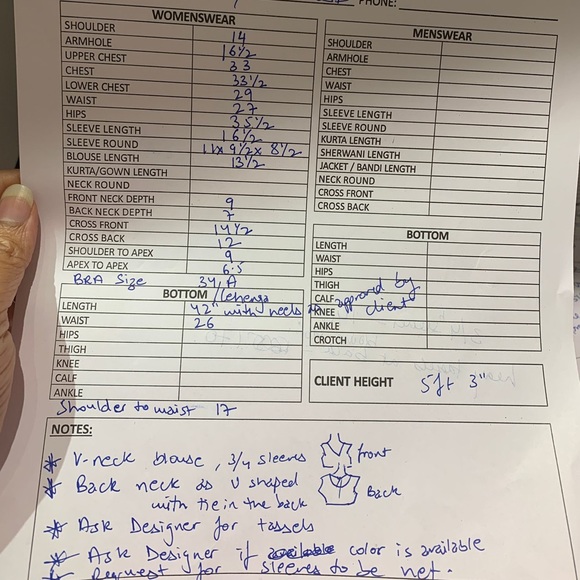 PHONE:
WOMENSWEAR
SHOULDER 14
ARMHOLE 16 1/2
UPPER CHEST 33
CHEST 33 1/2
LOWER CHEST 29
WAIST 27
HIPS 35 1/2
SLEEVE LENGTH 16 1/2
SLEEVE ROUND 11 x 9 1/2 x 8 1/2
BLOUSE LENGTH 13 1/2
KURTA/GOWN LENGTH
NECK ROUND
FRONT NECK DEPTH 9
BACK NECK DEPTH 7
CROSS FRONT 14 1/2
CROSS BACK 12
SHOULDER TO APEX 9
APEX TO APEX 6.5
BRA Size 34, A
BOTTOM /lehenga
LENGTH 42" with heels as approved by client
WAIST 26
HIPS
THIGH
KNEE
CALF
ANKLE
Shoulder to waist 17
MENSWEAR
SHOULDER
ARMHOLE
CHEST
WAIST
HIPS
SLEEVE LENGTH
SLEEVE ROUND
KURTA LENGTH
SHERWANI LENGTH
JACKET / BANDI LENGTH
NECK ROUND
CROSS FRONT
CROSS BACK
BOTTOM
LENGTH
WAIST
HIPS
THIGH
CALF
KNEE
ANKLE
CROTCH
CLIENT HEIGHT 5ft 3"
NOTES:
* V-neck blouse, 3/4 sleeves front
* Back neck as U shaped Back
with tie in the back
* Ask Designer for tassels
* Ask Designer if color is available
* Request for sleeves to be net.